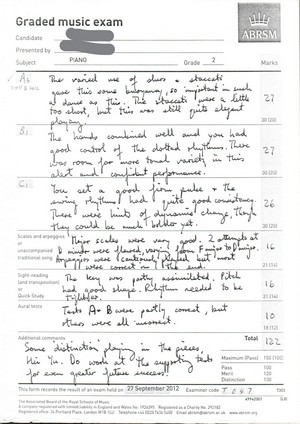 Graded music exam
ABRSM
Candidate
Presented by
Subject PIANO Grade 2 Marks
A1:
The varied use of slurs + staccati
gave this some buoyancy, so important in such
a dance as this. The staccati were a little
too short, but this was still quite elegant
playing.
27
30 (20)
B1:
The hands combined well and you had
good control of the dotted rhythms. There
was room for more tonal variety in this
alert and confident performance.
27
30 (20)
C1:
You set a good firm pulse + the
swing rhythms had quite good consistency.
There were hints of dynamic change, though
they could be much bolder yet.
26
30 (20)
Scales and arpeggios
or
unaccompanied
traditional song
Major scales were very good. 2 attempts at
D minor were flawed, from F minor to D minor.
Arpeggios were cautiously played but most
were correct in the end.
16
21 (14)
Sight-reading
(and transposition)
or
Quick Study
The key was partly assimilated. Pitch
had good shape. Rhythm needed to be
tighter.
16
21 (14)
Aural tests
Tests A + B were partly correct, but
others were all incorrect.
10
18 (12)
Additional comments
Total 122
Some distinction playing in the pieces,
Do work at the supporting tests
for even greater future success!
Maximum (Pass) 150 (100)
Pass 100
Merit 120
Distinction 130
This form records the result of an exam held on 27 September 2012 Examiner
The Associated Board of the Royal Schools of Music